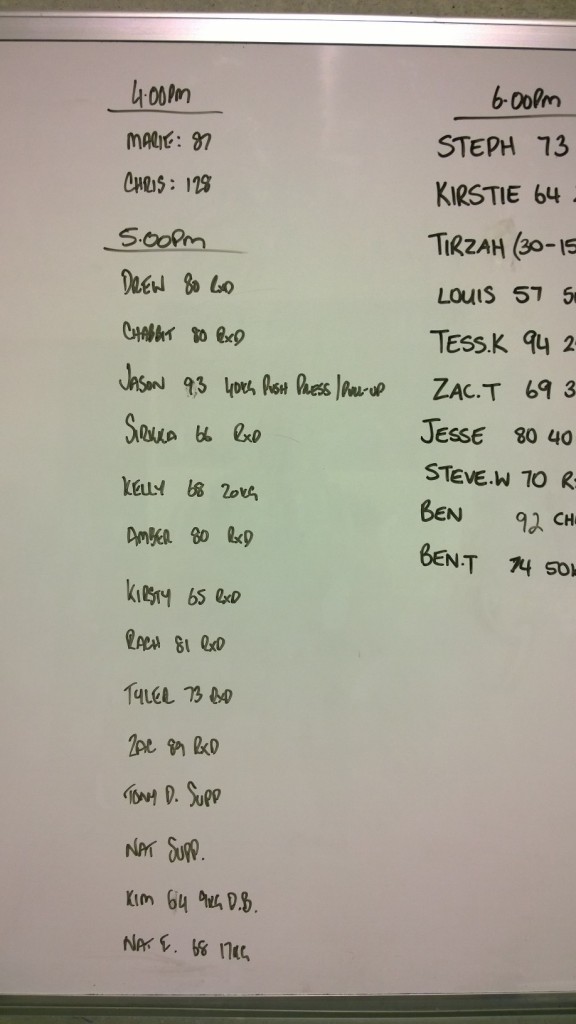 4:00pm
MARIE: 87
CHRIS: 128
5:00pm
DREW 80 RxD
80 RxD
JASON 93 40KG PUSH PRESS / PULL-UP
66 RxD
KELLY 68 20KG
AMBER 80 RxD
KIRSTY 65 RxD
RACH 81 RxD
TYLER 73 RxD
ZAC 89 RxD
TONY D. SUPP
NAT SUPP.
KIM 64 9KG D.B.
NAT E. 68 17KG
6:00pm
STEPH 73
KIRSTIE 64
TIRZAH (30-15
LOUIS 57
TESS.K 94
ZAC.T 69
JESSE 80 40
STEVE.W 70
BEN 92
BEN.T 74